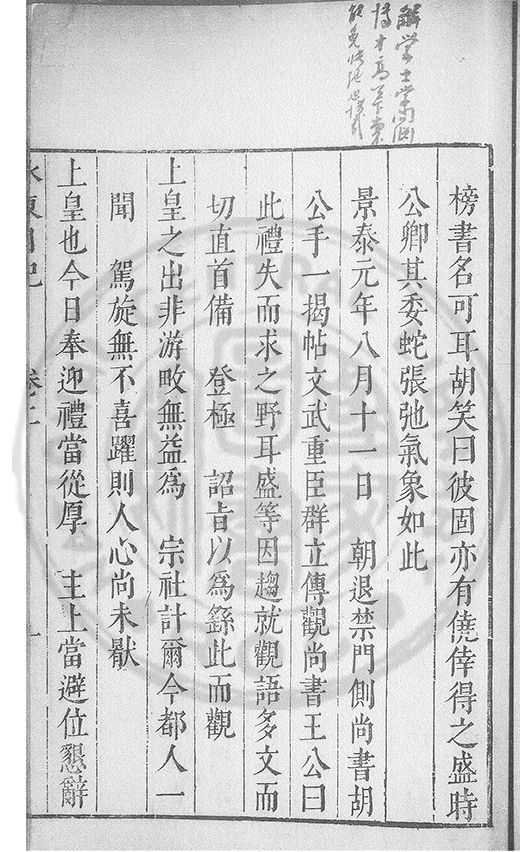 解學士
榜書名可耳胡笑曰彼固亦有僥倖得之盛時
公卿其委蛇張弛氣象如此
景泰元年八月十一日　朝退禁門側尚書胡
公手一揭帖文武重臣群立傳觀尚書王公曰
此禮失而求之野耳盛等因趨就觀語多文而
切直首備　登極　詔旨以為繇此而觀
上皇之出非游畋無益為　宗社計爾今都人一
聞　駕旋無不喜躍則人心尚未厭
上皇也今日奉迎禮當從厚　主上當避位懇辭
水東日記　卷二